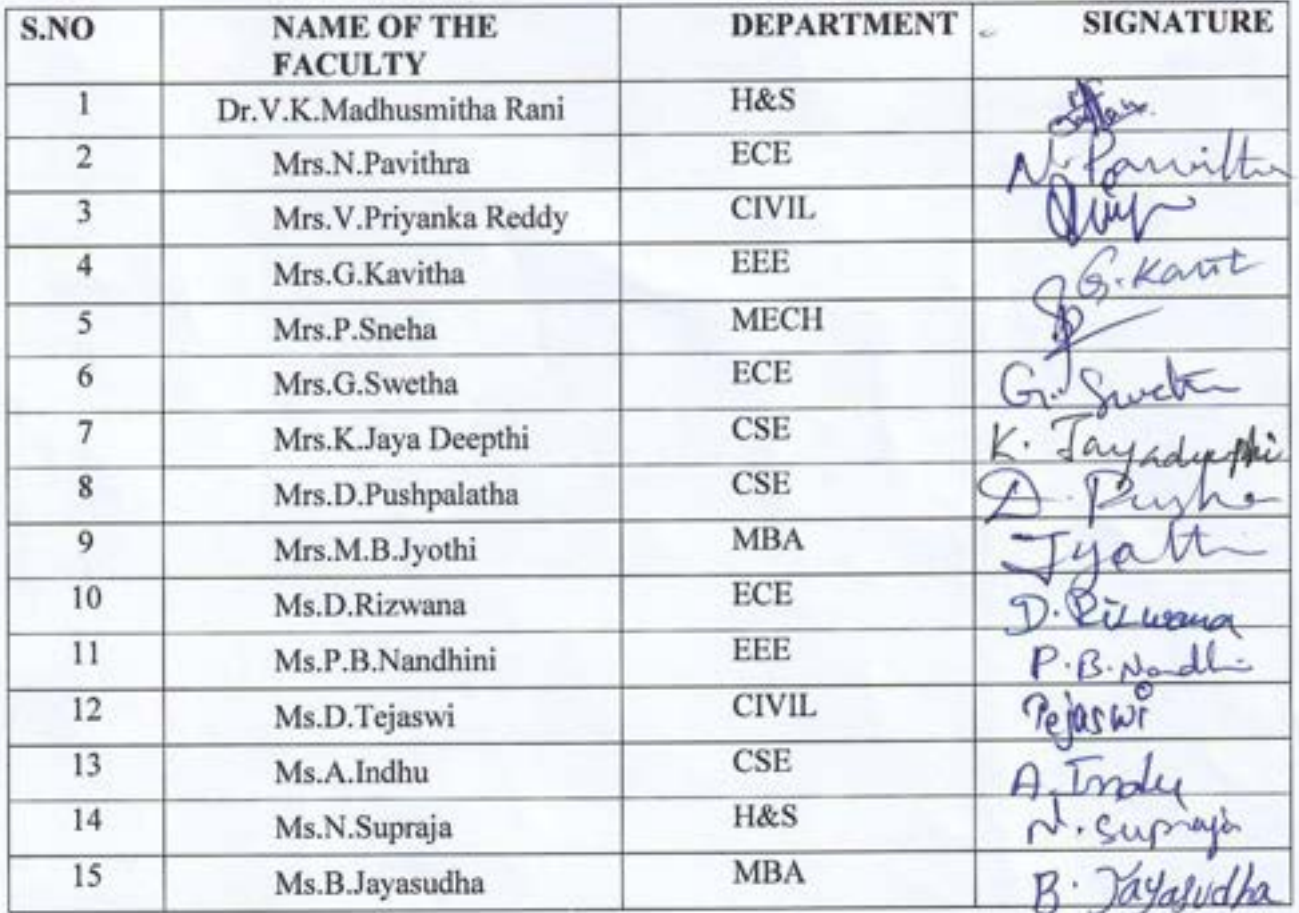 S.NO NAME OF THE DEPARTMENT SIGNATURE
FACULTY
1 Dr.V.K.Madhusmitha Rani H&S
2 Mrs.N.Pavithra ECE N. Pavithra
3 Mrs.V.Priyanka Reddy CIVIL
4 Mrs.G.Kavitha EEE G.Kavit
5 Mrs.P.Sneha MECH
6 Mrs.G.Swetha ECE G. Swetha
7 Mrs.K.Jaya Deepthi CSE K. Jayadeepthi
8 Mrs.D.Pushpalatha CSE D. Pushpa
9 Mrs.M.B.Jyothi MBA Jyothi
10 Ms.D.Rizwana ECE D. Rizwana
11 Ms.P.B.Nandhini EEE P.B.Nandhi
12 Ms.D.Tejaswi CIVIL Tejaswi
13 Ms.A.Indhu CSE A. Indhu
14 Ms.N.Supraja H&S N. Supraja
15 Ms.B.Jayasudha MBA B. Jayasudha